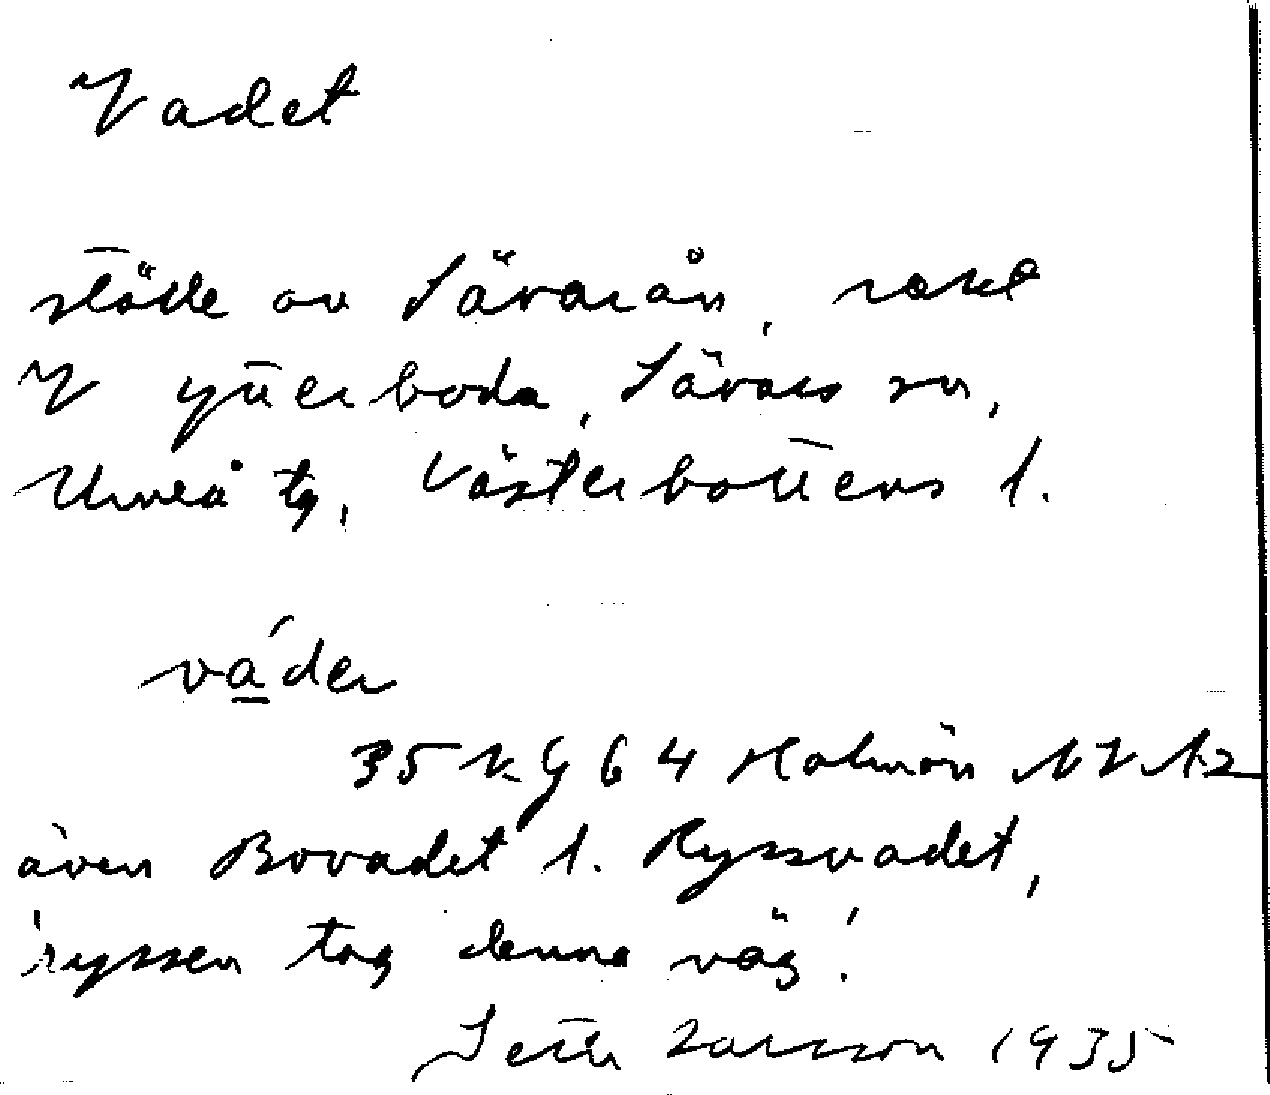 Vadet
ställe av Sävarån, rakt
V Ytterboda, Sävars sn,
Umeå tg, Västerbottens l.
vá̱der
35 KG 64 Holmön NV
även Bovadet l. Ryssvadet,
'ryssen tog denna väg'.
Seth Larsson 1935